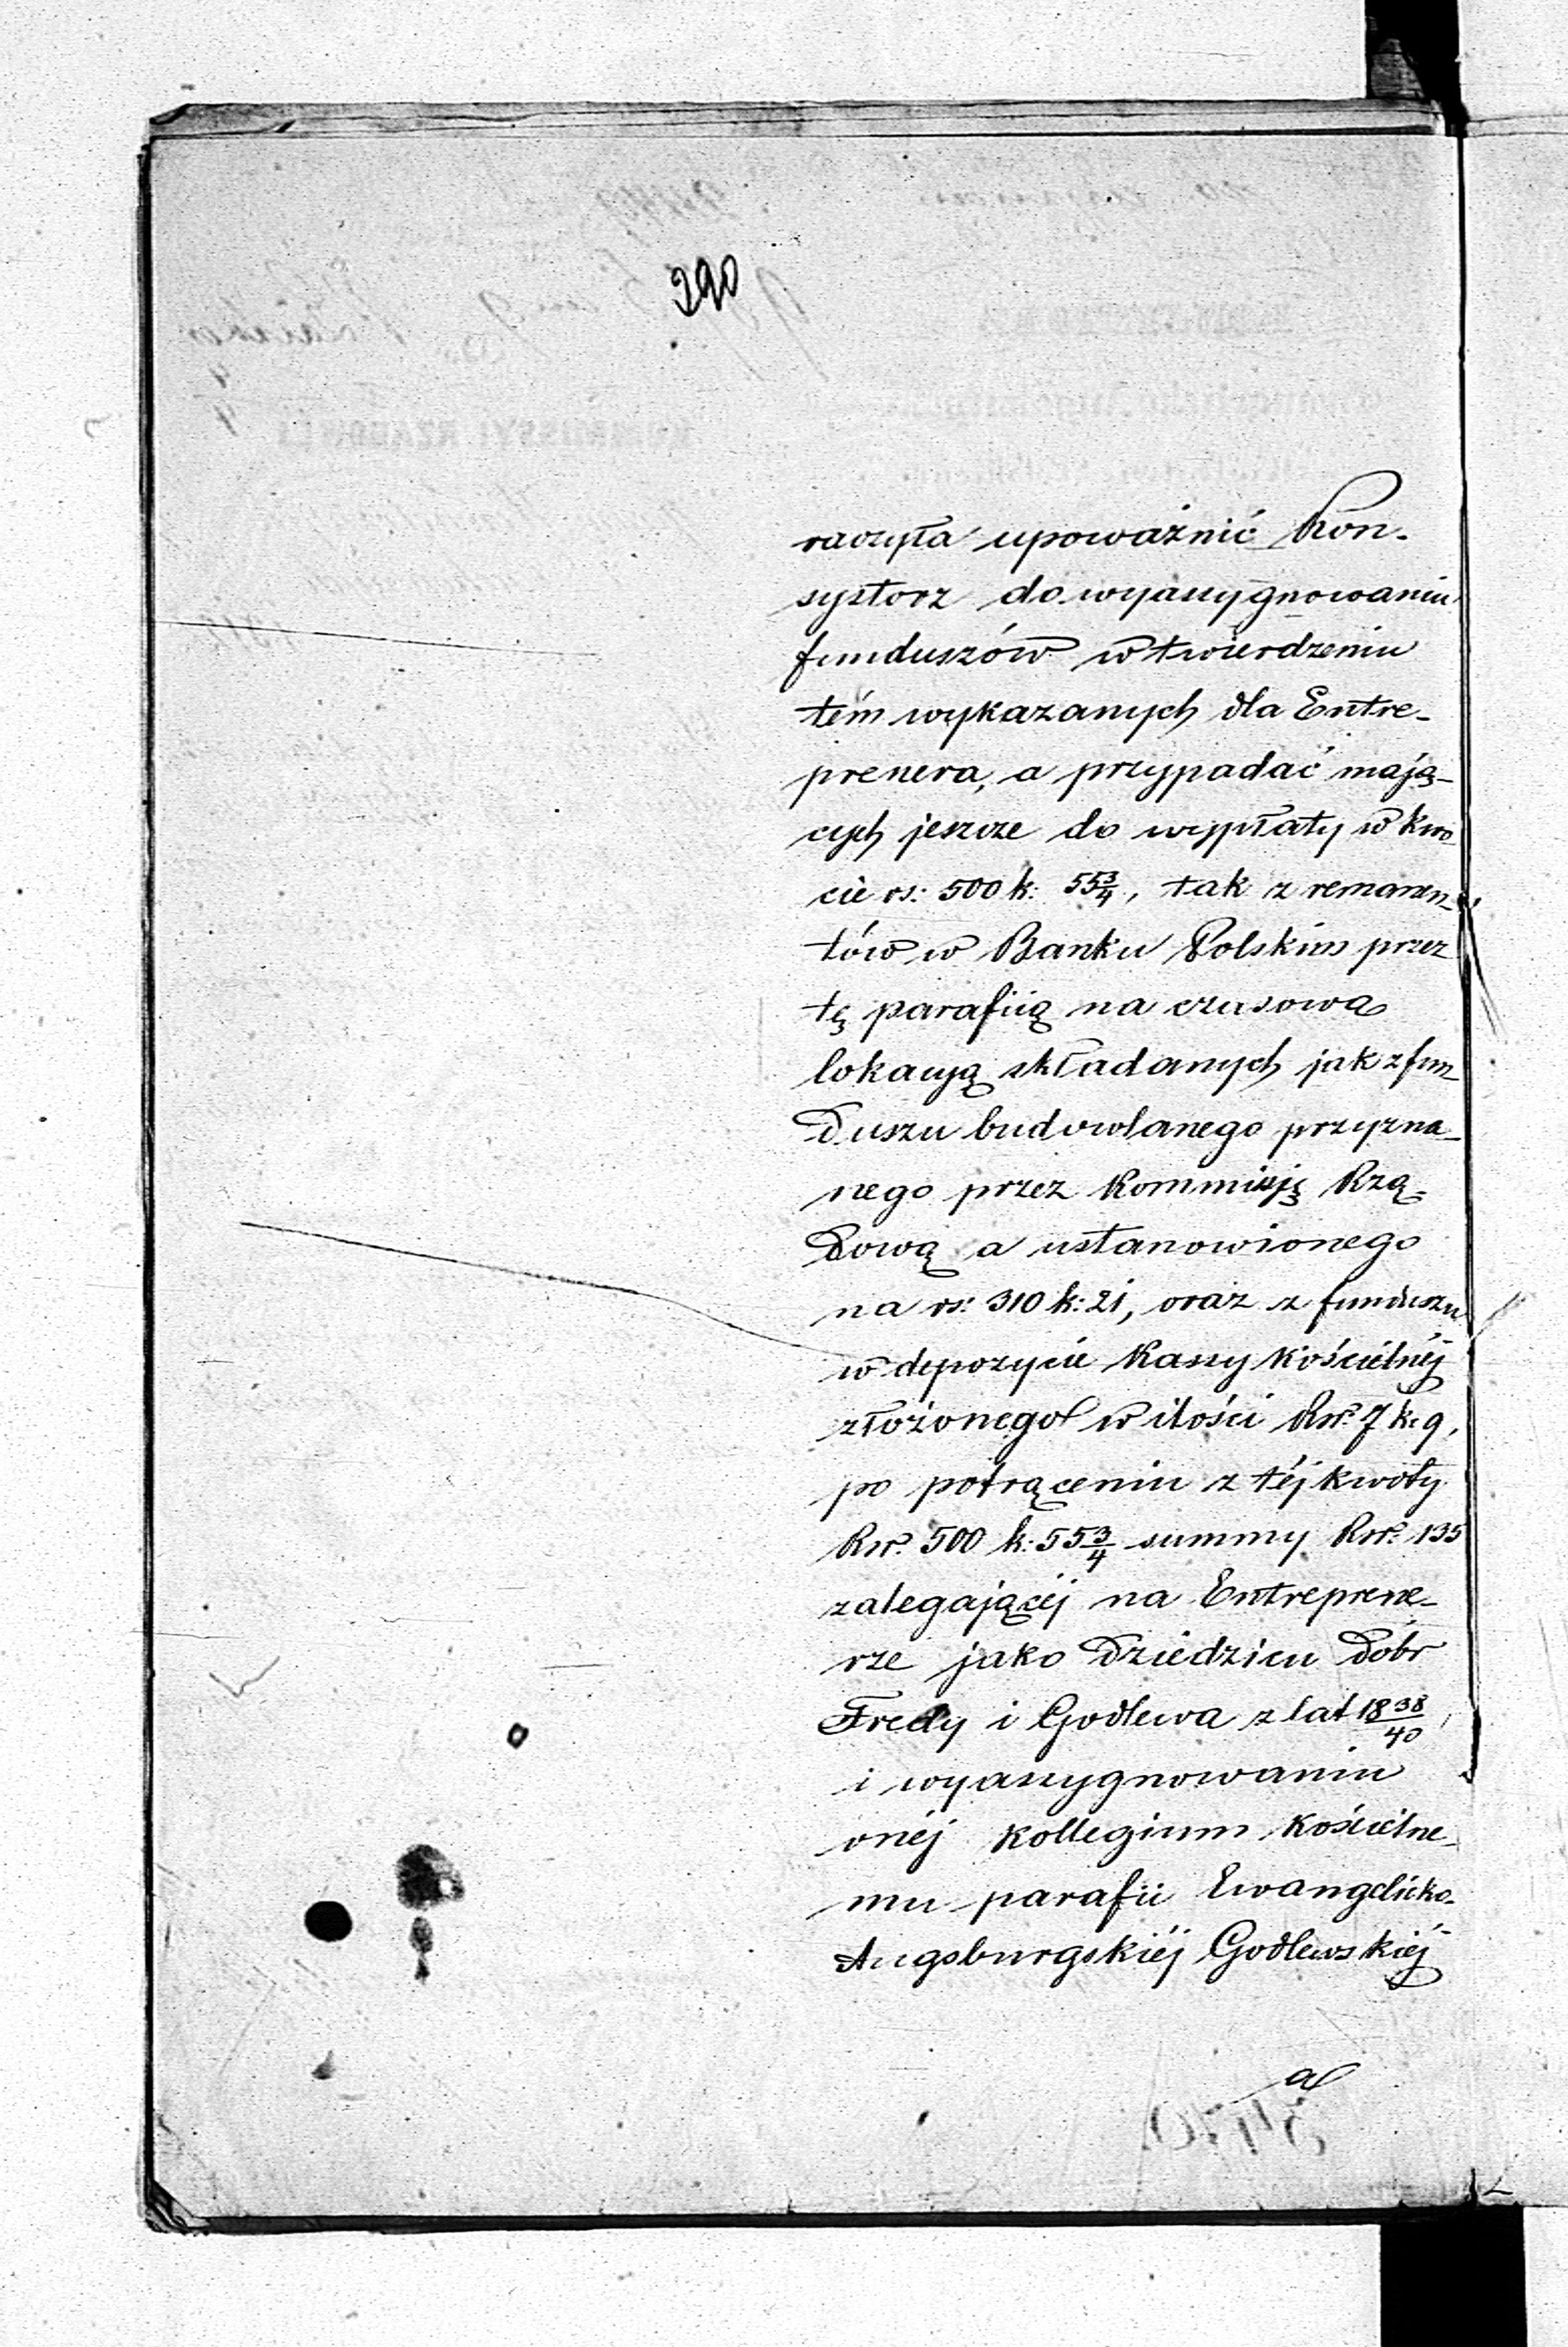 290
raczyła upoważnić Kon-
systorz do wyassygnowaniu
funduszów w twierdzeniu
tém wykazanych dla Entre-
prenera, a przypadać mają-
cych jeszcze do wypłaty w kwo-
cie rs: 500 k: 55 3/4, tak z remanen-
tów w Banku Polskim przez
tę parafiią na czasową
lokacyą składanych jak z fun-
duszu budowlanego przyzna-
nego przez Kommisję Rzą-
dową a ustanowionego
na rs: 310 k: 21, oraz z funduszu
w depozycie Kassy Kościelnéj
złożonego w ilości Rsr. 7 k. 9,
po potrąceniu z téj kwoty
Rsr. 500 k: 55 3/4 summy Rsr. 135
zalegającéj na Entreprene-
rze jako Dziedzicu Dóbr
Fredy i Godlewa z lat 1838/40,
i wyassygnowaniu
onéj Kollegium Kościelne-
mu parafii Ewangelicko-
Augsburgskiéj Godlewskiéj
a